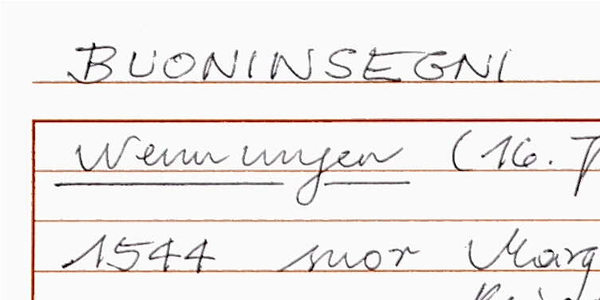 BUONINSEGNI
Nennungen (16. J
1544 suor Marg